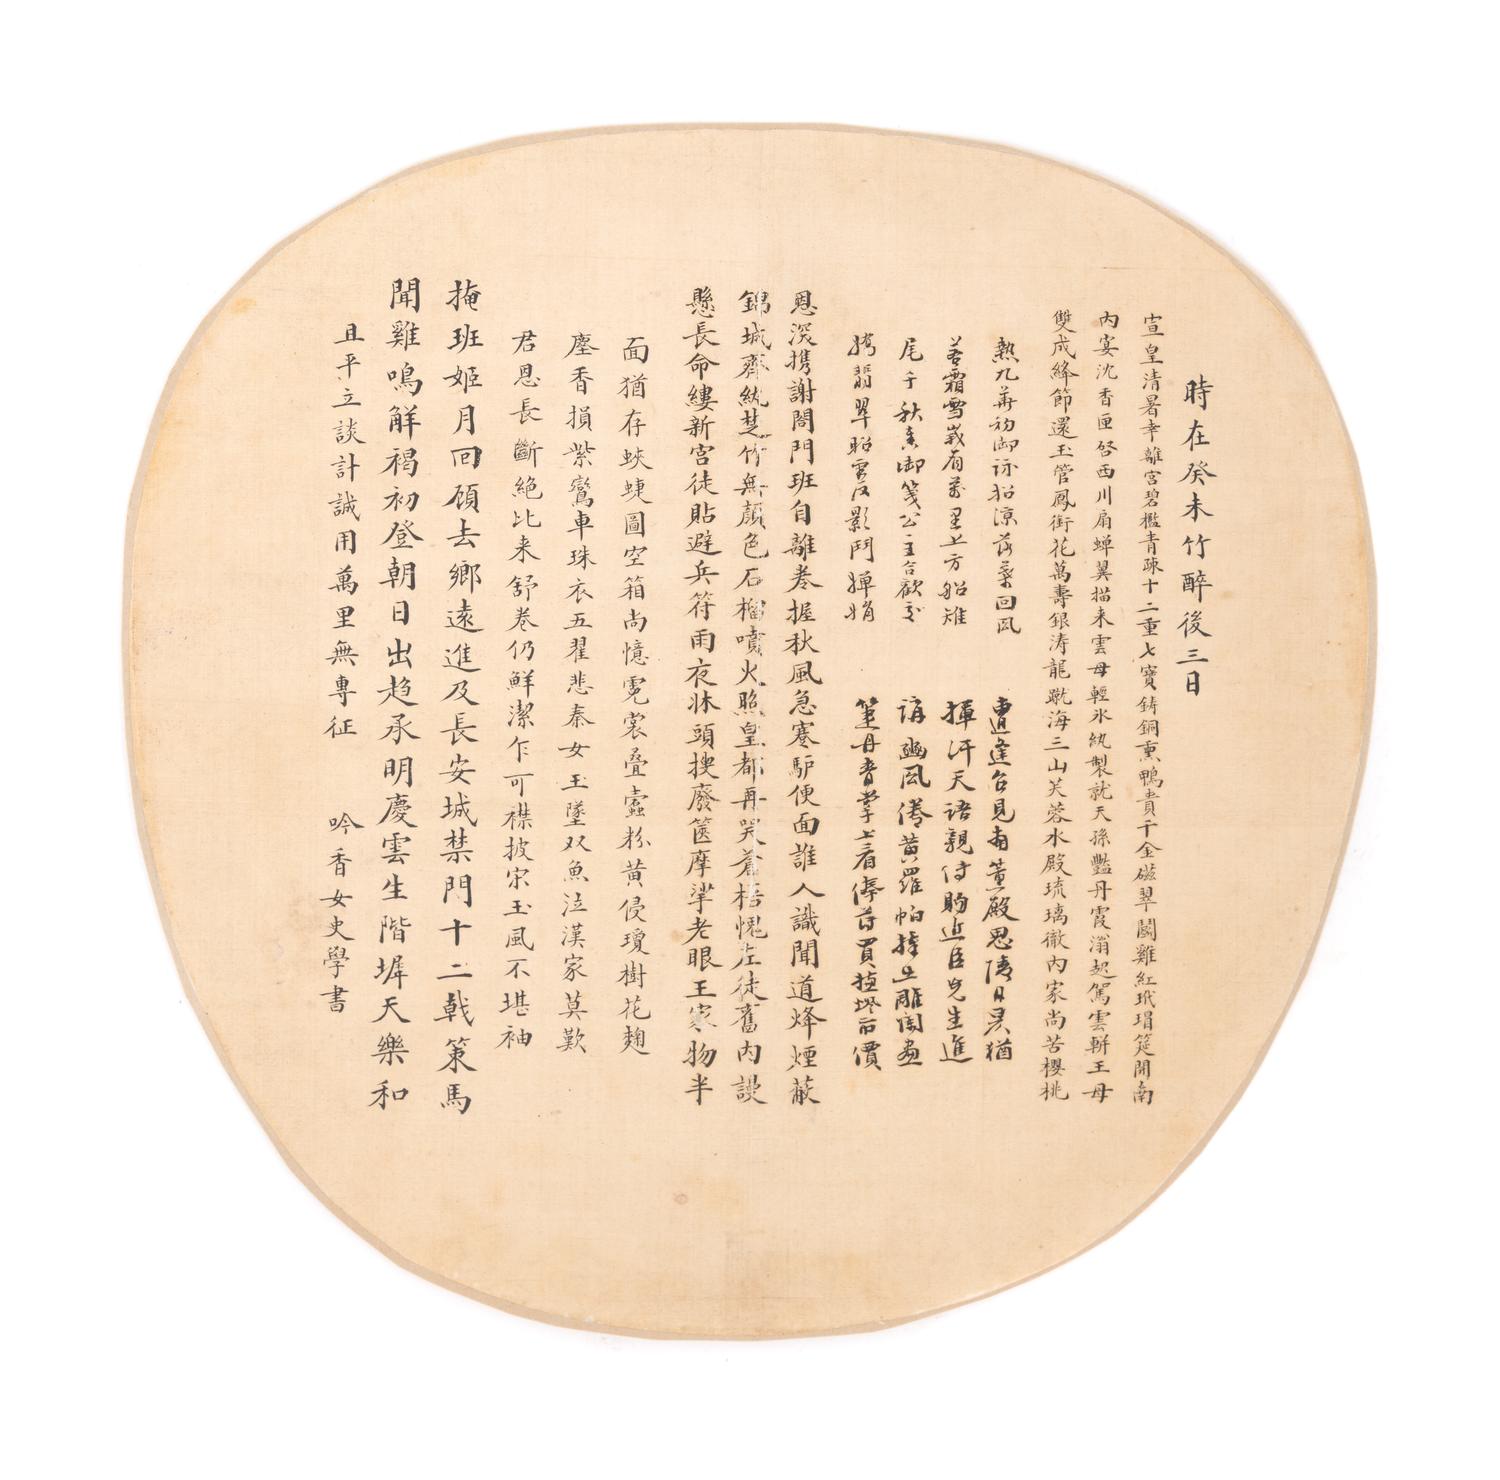 時在癸未竹醉後三日
宣皇清暑幸離宮碧檻青疎十二重七寶鋳銅熏鴨貴千金磁翠鬪雞紅玳瑁筵開南
內宴沈香匣啓西川扇蝉翼描来雲母輕氷紈製就天孫豔丹霞滃起駕雲軿王母
雙成絳節還玉管鳳銜花萬壽銀涛龍蹴海三山芙蓉水殿琉璃徹內家尚苦櫻桃
熱九華初御詠招涼落葉回風
若霜雪峩眉萬里上方船雉
尾千秋御箋公主合歡
翡翠昭影鬥嬋娟
曹逢召見南薰殿思陵日昃猶
揮汗天語親侍的近臣先生進
誦豳風倦黃羅帕捧出雕闌畫
筆丹青掌上看俸買價
恩深攜謝閤門班自離卷握秋風急蹇馿便面誰人識聞道烽煙蔽
錦城齊紈楚竹無顏色石榴噴火照皇都再哭蒼梧愧左徒舊內謾
懸長命縷新宮徒貼避兵符雨夜牀頭捜廢篋摩挲老眼王家物半
面猶存蛺蜨圖空箱尚憶霓裳疊蠹粉黃侵瓊樹花麹
塵香損紫鸞車珠衣五翟悲秦女玉墜双魚泣漢家莫歎
君恩長斷絕比来舒卷仍鮮潔乍可襟披宋玉風不堪袖
掩班姬月回頋去鄉遠進及長安城禁門十二戟策馬
聞雞鳴解褐初登朝日出趋承明慶雲生階墀天樂和
且平立談計誠用萬里無專征
吟香女史學書